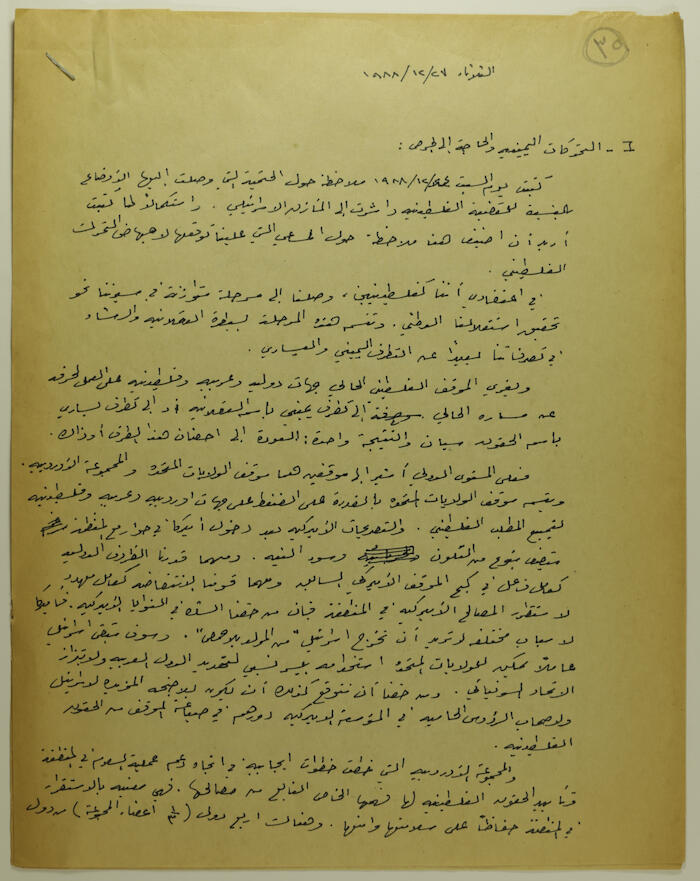 ٣٥
الثلاثاء ١٩٨٨/١٢/٢٧
I - التحركات اليمينية والحاجة إلى الحرص :
كتبت يوم السبت ١٩٨٨/١٢/٢٤ ملاحظة حول الحتمية التي وصلت إليها الأوضاع
بالنسبة للقضية الفلسطينية وأشرت إلى المأزق الاسرائيلي . واستكمالاً لما كتبت
أريد أن أضيف هنا ملاحظة حول المساعي التي علينا توقعها لاجهاض التحركات
الفلسطيني .
في اعتقادي أننا كفلسطينيين ، وصلنا إلى مرحلة متوازنة في مسيرتنا نحو
تحقيق استقلالنا الوطني . وتتسم هذه المرحلة بسيطرة العقلانية والرشاد
في تصرفاتنا بعيداً عن التطرف اليميني واليساري .
ويغري الموقف الفلسطيني الحالي جهات دولية وعربية وفلسطينية على العمل لحرفه
عن مساره الحالي إلى تطرف يميني باسم العقلانية أو إلى تطرف يساري
باسم الحقوق سيان والنتيجة واحدة : العودة إلى احضان هذا الطرف أو ذاك .
فعلى المستوى الدولي أشير إلى موقفين هما موقف الولايات المتحدة والمجموعة الأوروبية .
ويتسم موقف الولايات المتحدة بالقدرة على الضغط على جهات اوروبية وعربية وفلسطينية
لتمييع المطلب الفلسطيني . والتصريحات الأميركية بعد دخول أميركا في حوار مع المنظمة
تتصف بنوع من التلون وسوء النية . ومهما قدرنا الظروف الدولية
كعامل فاعل في كبح الموقف الأميركي السالب ومهما قومنا الانتفاضة كعامل مهدد
لاستقرار المصالح الأميركية في المنطقة فبان من حقنا الشك في النوايا الأميركية . فأميركا
لاسباب مختلفة لا تريد أن تخرج اسرائيل "من المولد بلا حمص" . وسوف تبقى اسرائيل
عاملاً يمكن للولايات المتحدة استخدامه بيسر نسبي لتهديد الدول العربية ولابتزاز
الاتحاد السوفياتي . ومن حقنا أن نتوقع كذلك أن يكون للاجنحة المؤيدة لاسرائيل
ولاصحاب الرؤوس الحامية في المؤسسة الاميركية دورهم في صياغة الموقف من الحقوق
الفلسطينية .
والمجموعة الأوروبية التي خطت خطوات ايجابية في اتجاه دعم عملية السلام في المنطقة
وتأييد الحقوق الفلسطينية لها فهمها الخاص النابع من مصالحها . فهي معنية بالاستقرار
في المنطقة حفاظاً على سلامتها وأمنها . وهناك اربع دول ( ⅓ أعضاء المجموعة ) من دول